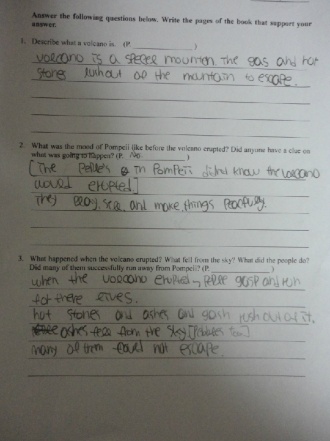 Answer the following questions below. Write the pages of the book that support your
answer.
1. Describe what a volcano is. (P.____________)
volcano is a specel mounten the gas and hot
stones out of the mountain to escape.
2. What was the mood of Pompeii like before the volcano erupted? Did anyone have a clue on
what was going to happen? (P. No ____________)
[The in Pompeii didnt know the volcano
would erupted]
They play, and make things peacfully.
3. What happened when the volcano erupted? What fell from the sky? What did the people do?
Did many of them successfully run away from Pompeii? (P.____________)
when the volcano erupted, gasp and run
for there lives.
hot stones and ashes and gash rush out of it,
ashes fell from the sky
many of them could not escape